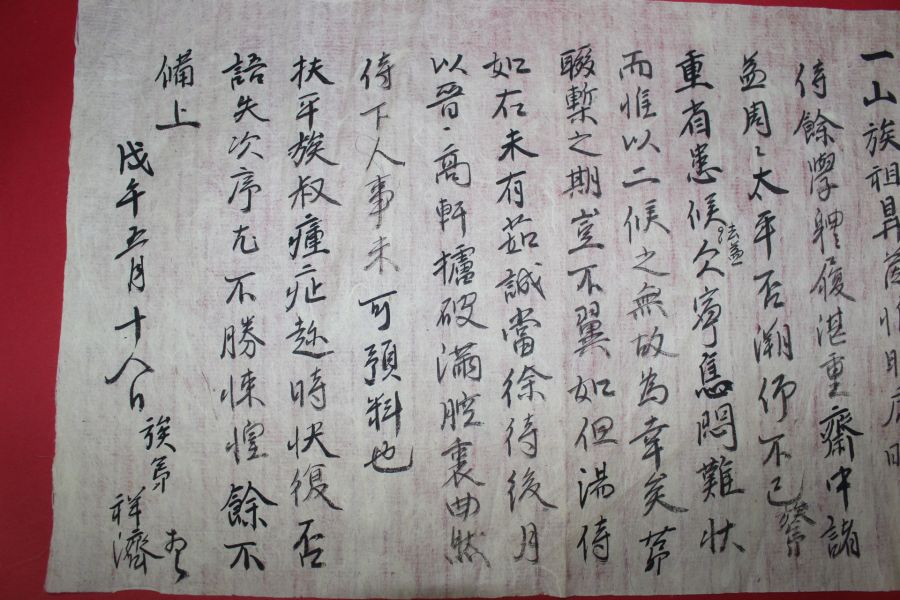 一山族祖昇
侍餘學體履湛重齋中諸
益周〻太平否溯仰不已族弟
重省患候欠寧焦悶難狀
而惟以二候之無故為幸矣第
暫之期豈不翼如但湯侍
如右未有茹誠當徐待後月
以晉高軒攄破滿腔裏曲然
侍下人事未可預料也
扶平族叔瘇症趁時快復否
語失次序尤不勝悚惶餘不
備上
戊午五月十八日 族弟
祥濟